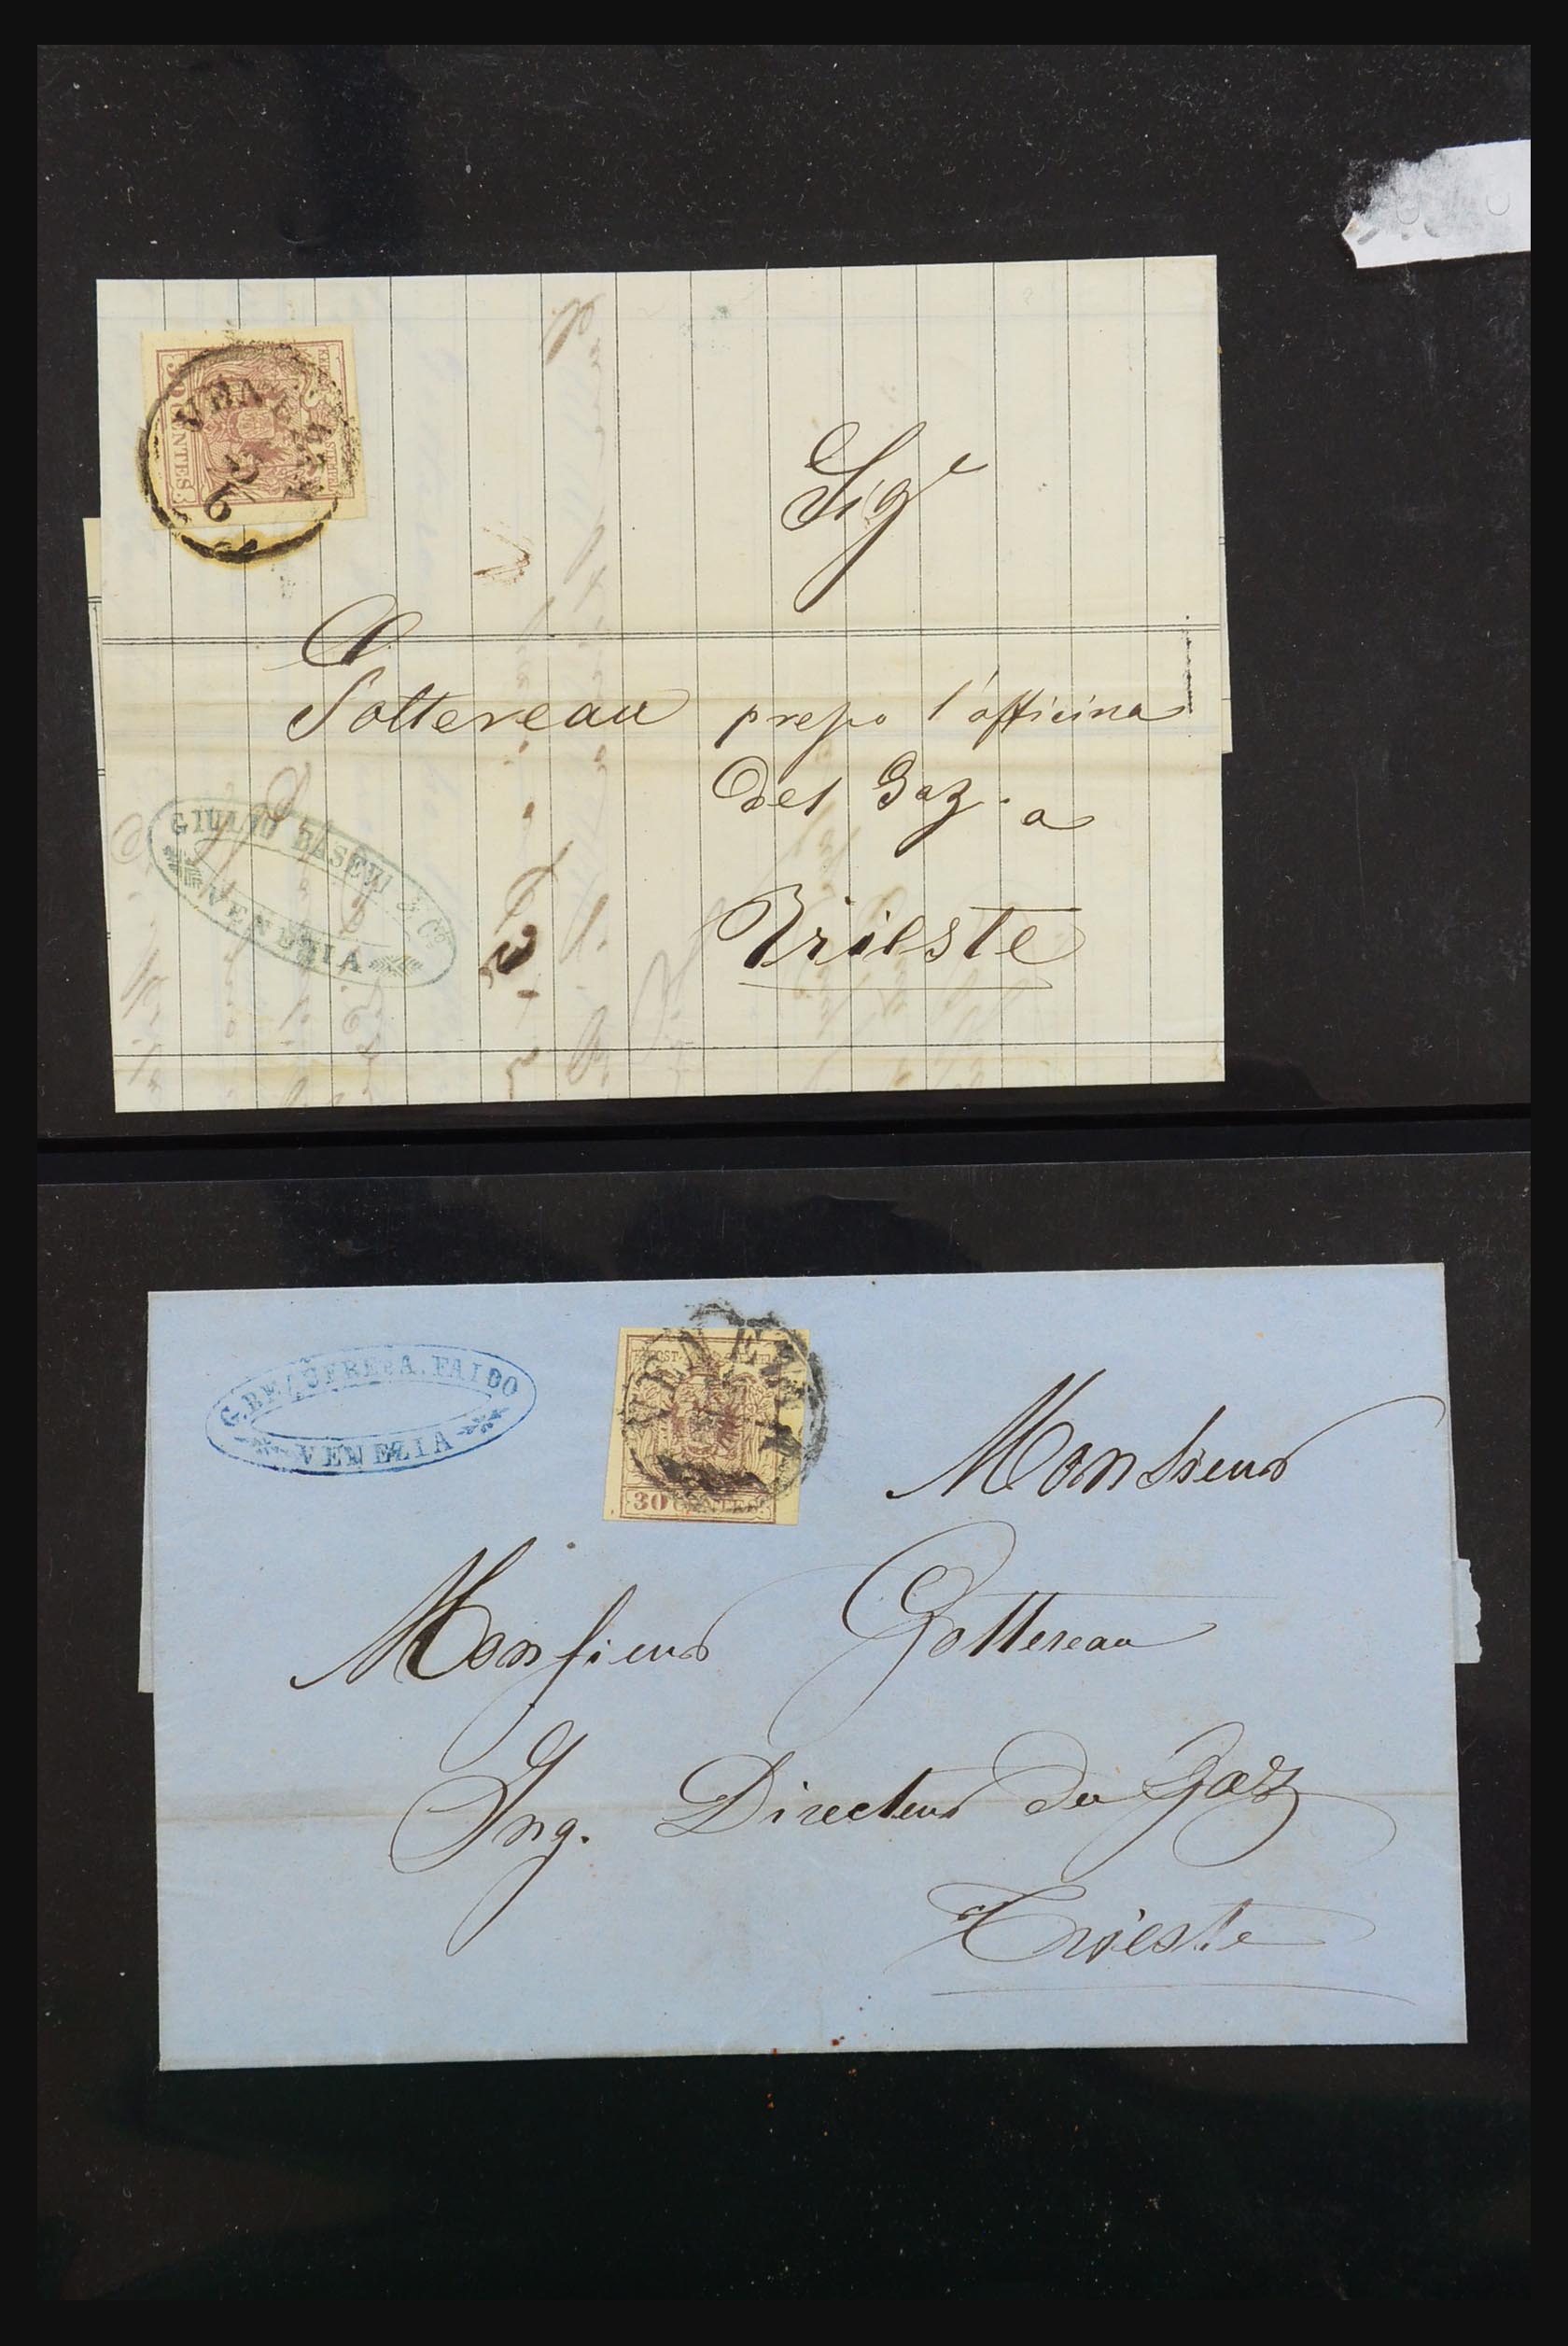 30 CENTES.
VENEZIA
Sig.e
Sottereau prepo l'officina
del Gaz. a
Trieste
GIULIO BASEVI & Co.
VENEZIA
A. FAIDO
VENEZIA
VENEZIA
30 CENTES.
Monsieur
Monsieur Gottereau
Ing. Directeur du Gaz
Trieste